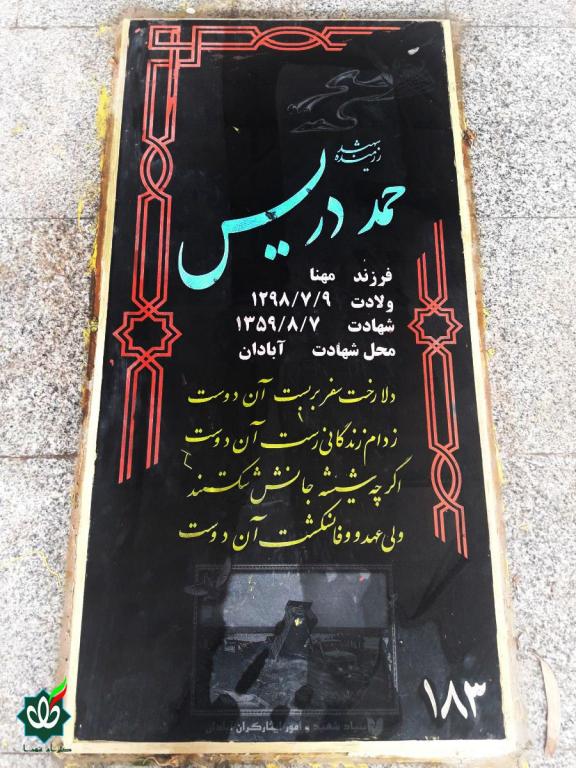 رزمنده شهید
حمد دریس
فرزند مهنا
ولادت ۱۲۹۸/۷/۹
شهادت ۱۳۵۹/۸/۷
محل شهادت آبادان
دلا رخت سفر بربست آن دوست
ز دام زندگانی رست آن دوست
اگر چه شیشه جانش شکستند
ولی عهد و وفا نشکست آن دوست
بنیاد شهید و امور ایثارگران آبادان
۱۸۳